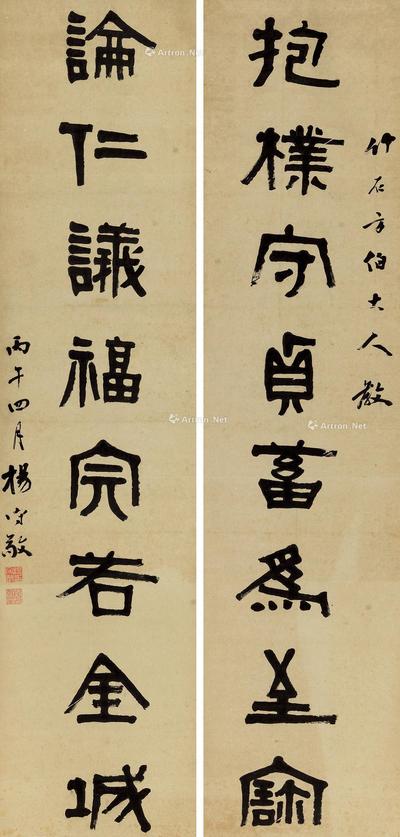 竹石方伯大人教
抱樸守貞蓄爲至
論仁議福完若金城
丙午四月楊守敬
Artron.Net
Artron.Net
Artron.Net
Artron.Net